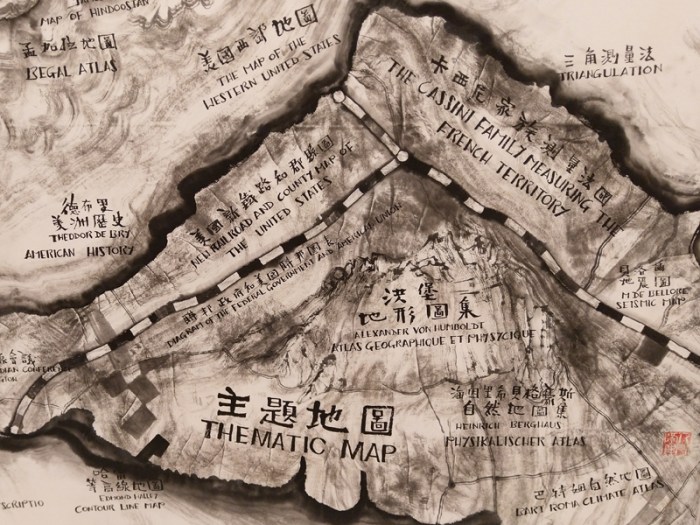 MAP OF HINDOOSTAN
孟加拉地圖
BEGAL ATLAS
美國西部地圖
THE MAP OF THE
WESTERN UNITED STATES
三角測量法
TRIANGULATION
卡西尼家族測量法國
THE CASSINI FAMILY MEASURING THE
FRENCH TERRITORY
德布里
美洲歷史
THEODOR DE BRY
AMERICAN HISTORY
美國鐵路和郡縣圖
NEW RAILROAD AND COUNTY MAP OF
THE UNITED STATES
聯邦政府和美國
DIAGRAM OF THE FEDERAL GOVERNMENT AND AMERICAN UNION
洪堡
地形圖集
ALEXANDER VON HUMBOLDT
ATLAS GEOGRAPHIQUE ET PHYSYCIQUE
地震圖
M DE BELLOIRE
SEISMIC MAP
主題地圖
THEMATIC MAP
自然地圖集
HEINRICH BERGHAUS
PHYSIKALISCHER ATLAS
等高線地圖
EDMOND HALLEY
CONTOUR LINE MAP
SCRIPTIO
巴特姆自然地圖
BART ROMA CLIMATE ATLAS